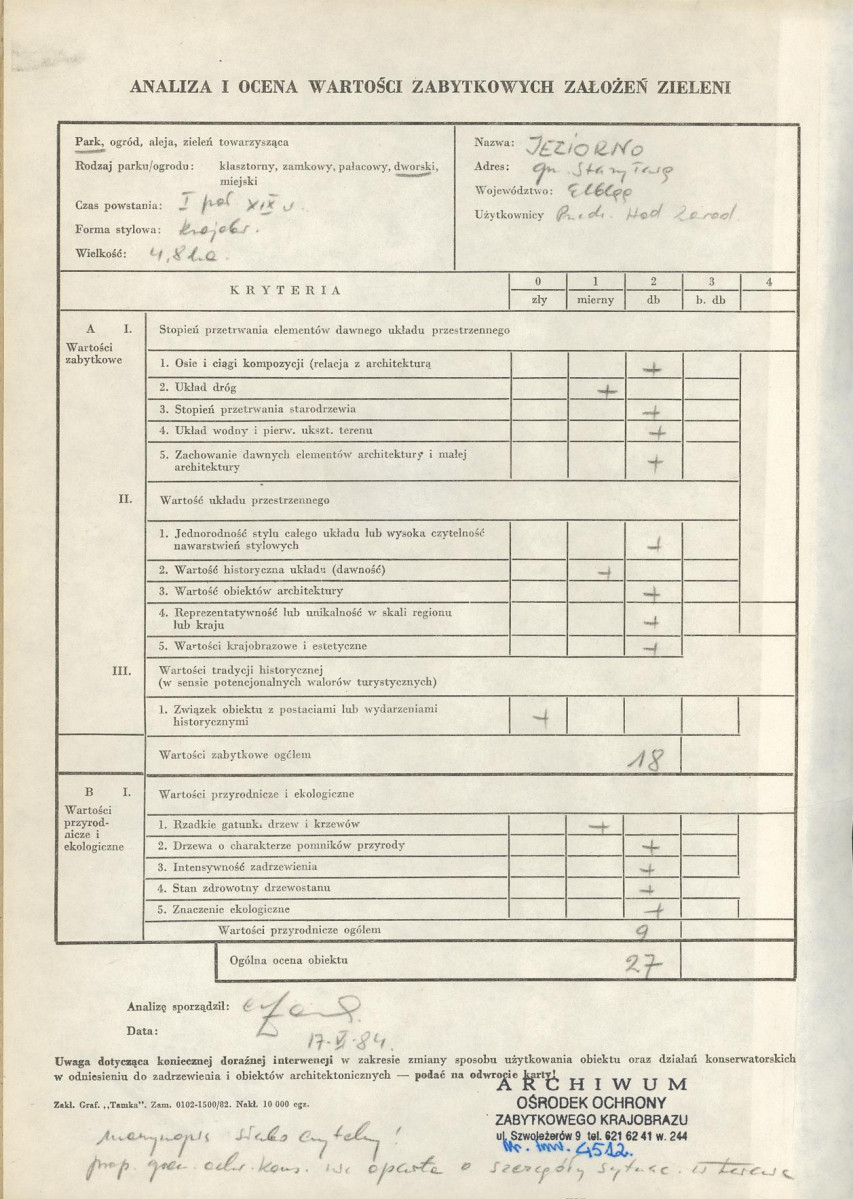 ANALIZA I OCENA WARTOŚCI ZABYTKOWYCH ZAŁOŻEŃ ZIELENI
Park, ogród, aleja, zieleń towarzysząca
Rodzaj parku/ogrodu: klasztorny, zamkowy, pałacowy, dworski, miejski
Czas powstania: I poł XIX w.
Forma stylowa: Krajobr.
Wielkość: 4,8 ha.
Nazwa: JEZIORNO
Adres: gm. Stary Targ
Województwo: Elbląg
Użytkownicy Hod Zarod
KRYTERIA
0 1 2 3 4
zły mierny db b. db
A I. Stopień przetrwania elementów dawnego układu przestrzennego
Wartości zabytkowe
1. Osie i ciągi kompozycji (relacja z architekturą +
2. Układ dróg +
3. Stopień przetrwania starodrzewia +
4. Układ wodny i pierw. ukszt. terenu +
5. Zachowanie dawnych elementów architektury i małej architektury +
II. Wartość układu przestrzennego
1. Jednorodność stylu całego układu lub wysoka czytelność nawarstwień stylowych +
2. Wartość historyczna układu (dawność) +
3. Wartość obiektów architektury +
4. Reprezentatywność lub unikalność w skali regionu lub kraju +
5. Wartości krajobrazowe i estetyczne +
III. Wartości tradycji historycznej
(w sensie potencjonalnych walorów turystycznych)
1. Związek obiektu z postaciami lub wydarzeniami historycznymi +
Wartości zabytkowe ogółem 18
B I. Wartości przyrodnicze i ekologiczne
Wartości przyrod-
nicze i
ekologiczne
1. Rzadkie gatunki drzew i krzewów +
2. Drzewa o charakterze pomników przyrody +
3. Intensywność zadrzewienia +
4. Stan zdrowotny drzewostanu +
5. Znaczenie ekologiczne +
Wartości przyrodnicze ogółem 9
Ogólna ocena obiektu 27
Analizę sporządził:
Data: 17-V-84.
Uwaga dotycząca koniecznej doraźnej interwencji w zakresie zmiany sposobu użytkowania obiektu oraz działań konserwatorskich
w odniesieniu do zadrzewienia i obiektów architektonicznych — podać na odwrocie karty!
Zakł. Graf. „Tamka". Zam. 0102-1500/82. Nakł. 10 000 egz.
ARCHIWUM
OŚRODEK OCHRONY
ZABYTKOWEGO KRAJOBRAZU
ul. Szwoleżerów 9 tel. 621 62 41 w. 244
Nr. inw. 4512.
maszynopis słabo czytelny!
prop. gran. ochr. kons. oparta o szczegóły sytuac. w terenie